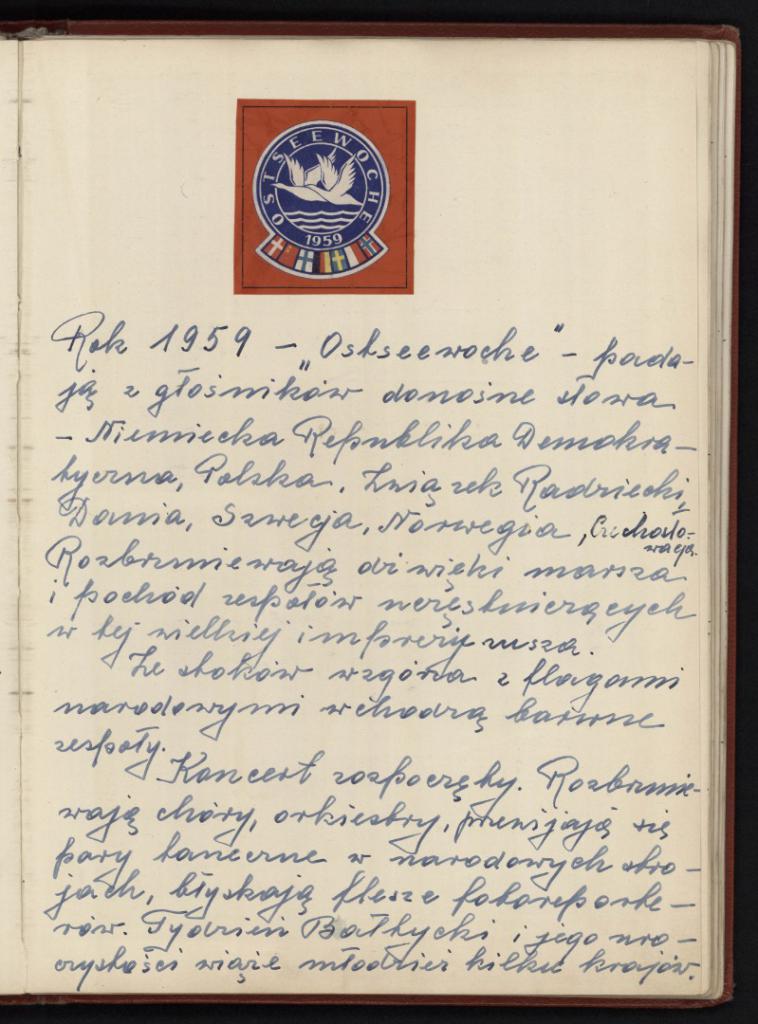 OSTSEEWOCHE
1959
Rok 1959 – „Ostseewoche" – pada-
ją z głośników donośne słowa
– Niemiecka Republika Demokra-
tyczna, Polska, Związek Radziecki,
Dania, Szwecja, Norwegia, Czechosło-
wacja.
Rozbrzmiewają dźwięki marsza
i pochód zespołów uczęstniczących
w tej wielkiej imprezy rusza.
Ze stoków wzgórza z flagami
narodowymi wchodzą barwne
zespoły.
Koncert rozpoczęty. Rozbrzmie-
wają chóry, orkiestry, przewijają się
pary taneczne w narodowych stro-
jach, błyskają flesze fotoreporte-
rów. Tydzień Bałtycki i jego uro-
czystości wiąże młodzież kilku krajów.